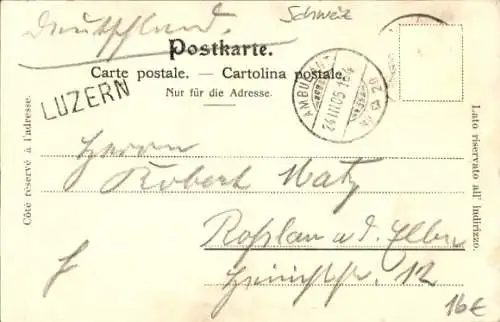 Deutschland.
Schweiz
Postkarte.
Carte postale. — Cartolina postale.
Nur für die Adresse.
LUZERN
AMBULANT
24 III 05
Côté réservé à l'adresse.
Lato riservato all' indirizzo.
Herrn
Robert Matz
Roßlau a. d. Elbe
12
16€